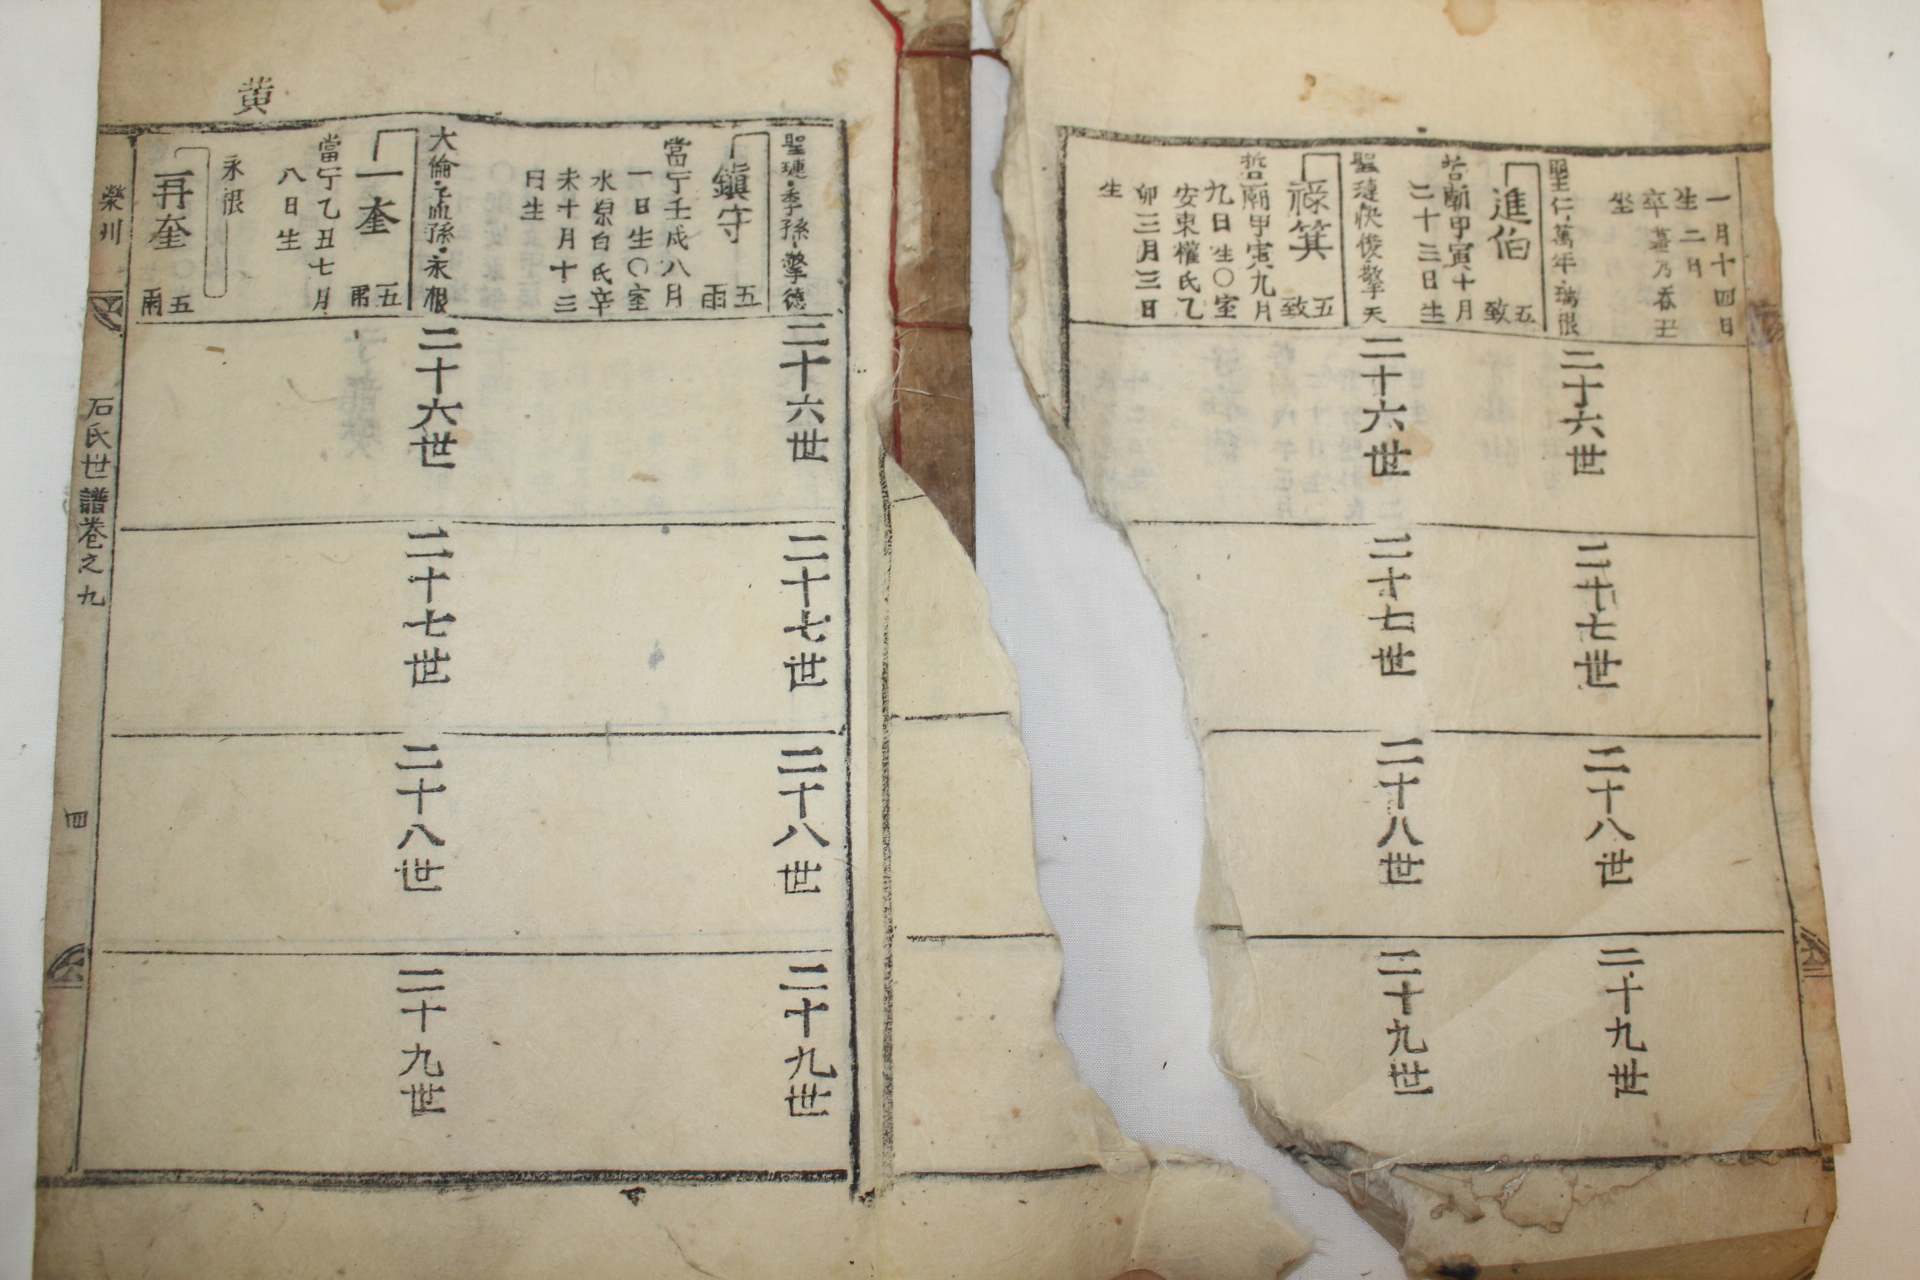 一月十四日
生二日
卒墓乃春丑
坐
聖仁萬年瑞根
進伯
五
致
哲廟甲寅十月
二十三日生
聖璉快俊擎天
祿箕
五
致
哲廟甲寅九月
九日生〇室
安東權氏乙
卯三月三日
生
二十六世
二十六世
二十七世
二十七世
二十八世
二十八世
二十九世
二十九世
聖璉季孫擎德
鎭守
五
雨
當宁壬戌八月
一日生〇室
水原白氏辛
未十月十三
日生
大倫孫永根
一奎
五
甫
當宁乙丑七月
八日生
永根
再奎
五
甫
二十六世
二十六世
二十七世
二十七世
二十八世
二十八世
二十九世
二十九世
黄
榮川
石氏世譜卷之九
四